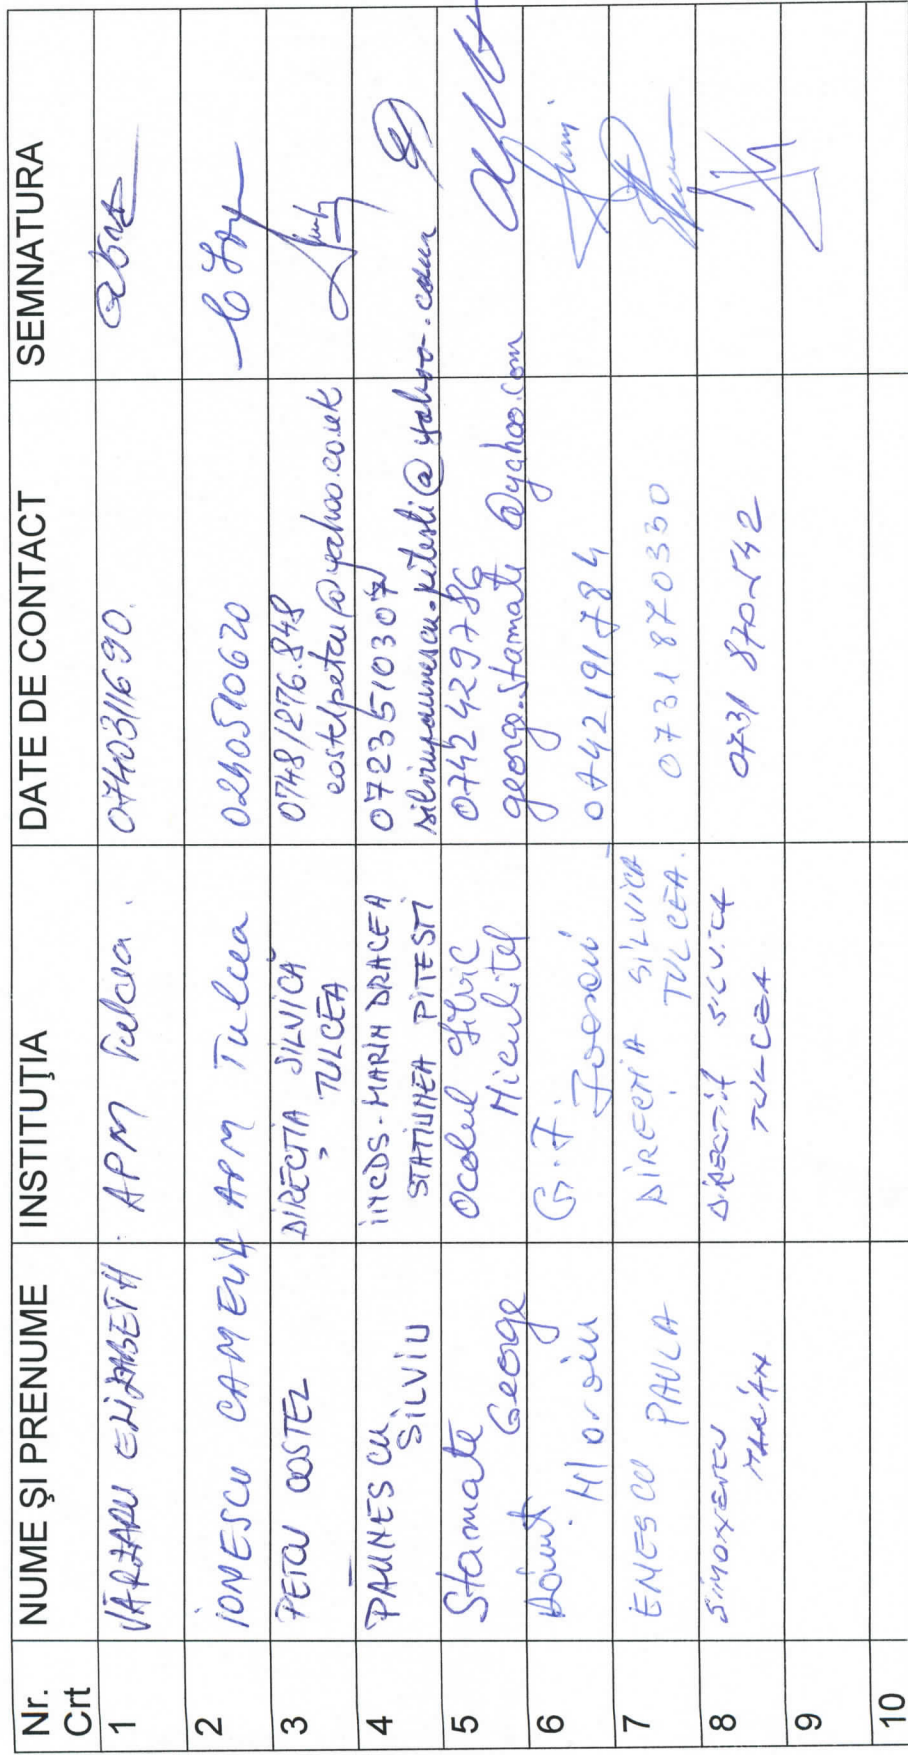 Nr. Crt NUME ȘI PRENUME INSTITUȚIA DATE DE CONTACT SEMNATURA
1 ELIZABETH APM Tulcea. 0740311690.
2 IONESCU CAMELIA APM Tulcea 0240510620
3 PETCU COSTEL DIRECȚIA SILVICĂ TULCEA 0748/276.848 costelpetcu@yahoo.co.uk
4 PĂUNESCU SILVIU INCDS-MARIN DRACEA STATIUNEA PITESTI 0723510307 silviupaunescu.pitesti@yahoo.com
5 Stamate George Ocolul Silvic Niculitel 0742429786 george.stamate@yahoo.com
6 G.F. 0742191784
7 ENESCU PAULA DIRECȚIA SILVICĂ TULCEA. 0731870330
8 DIRECTIA SILVICA TULCEA 0731 870542
9
10